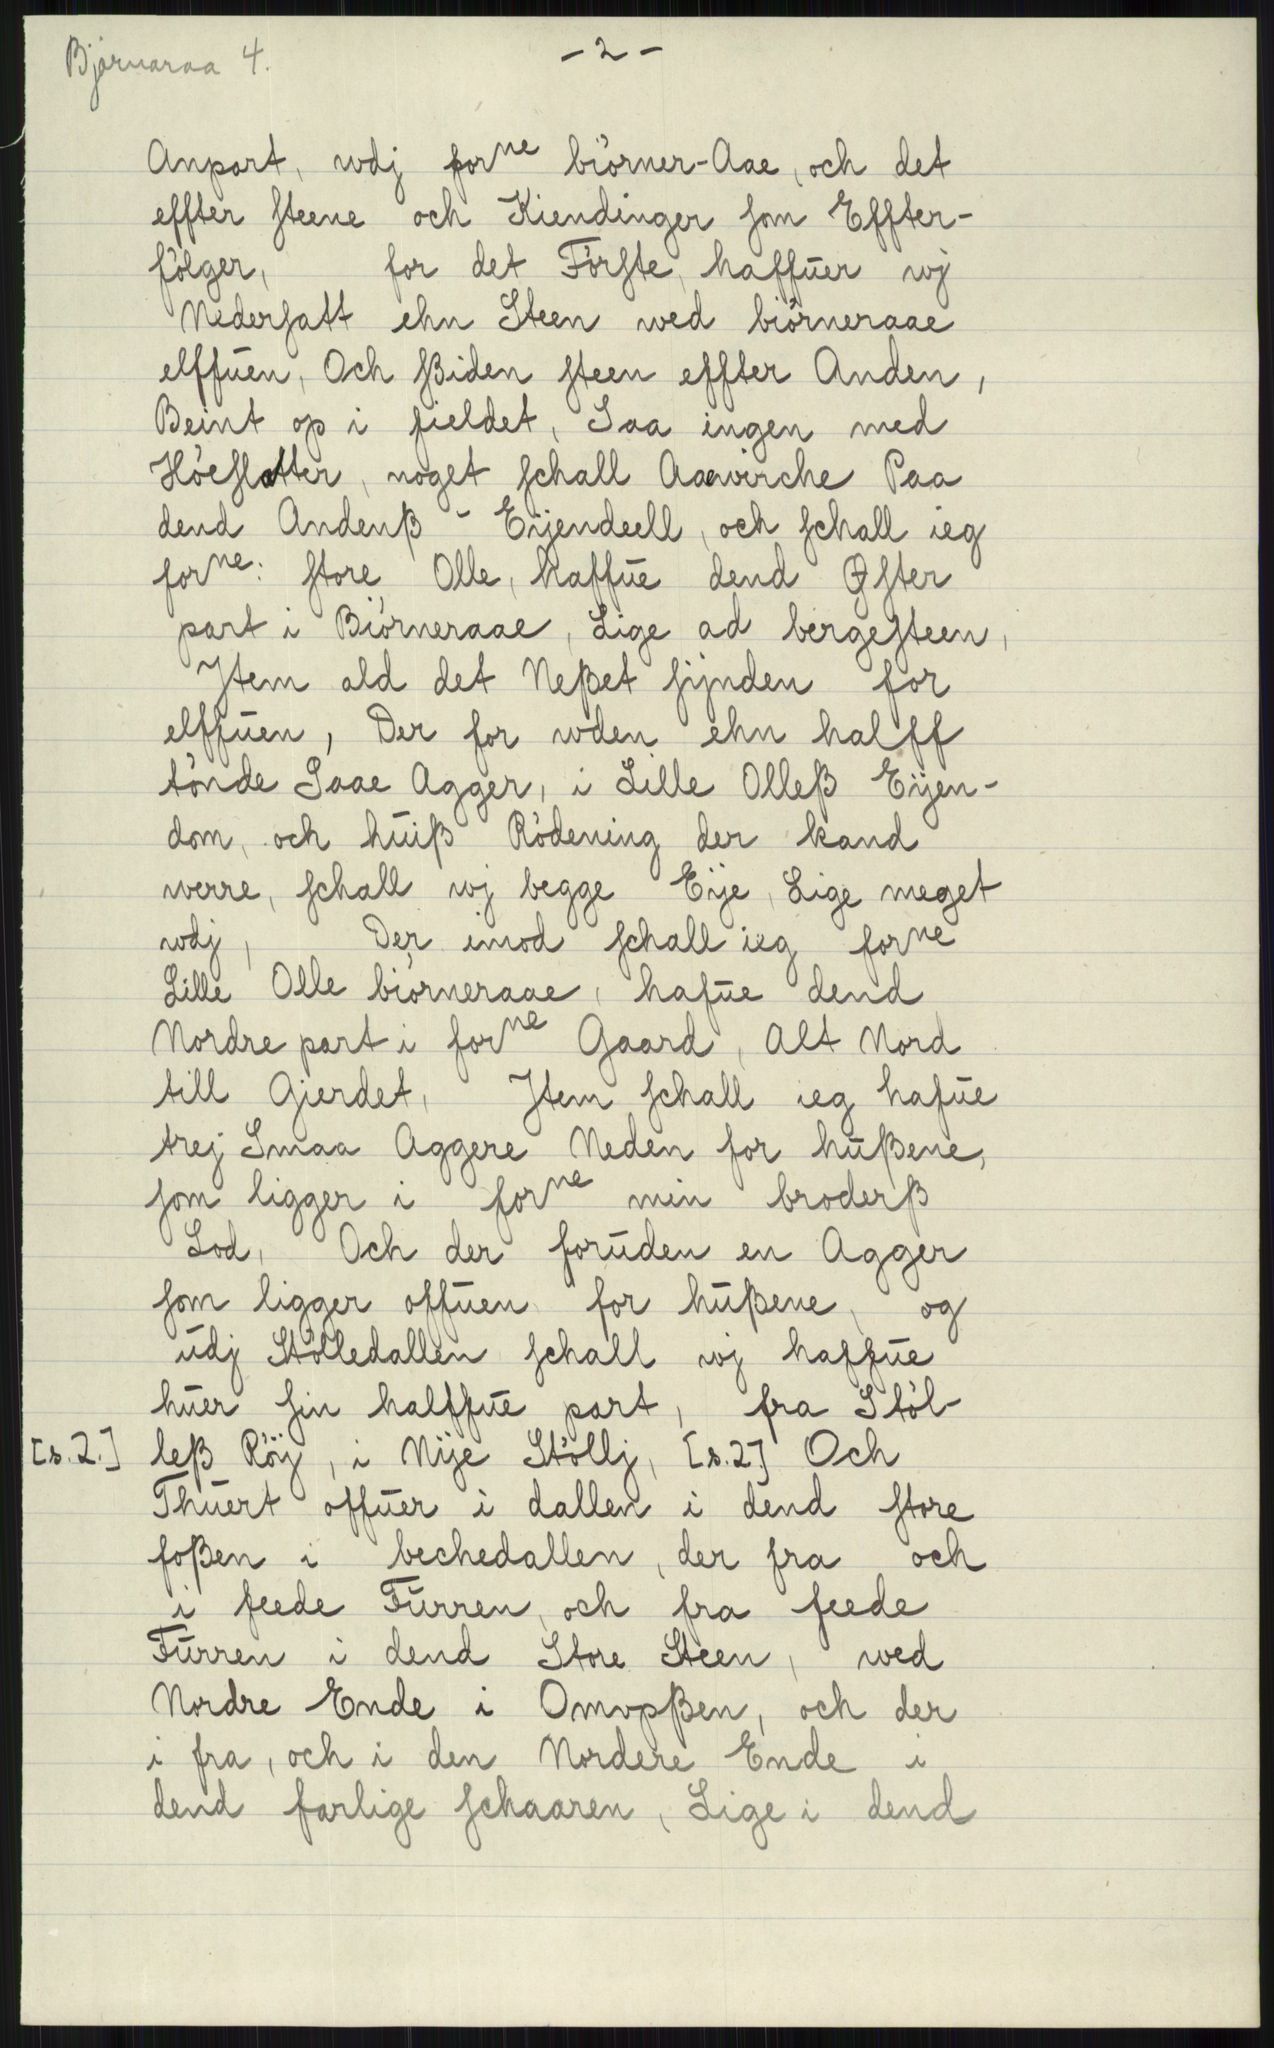 Bjørnaraa 4.
- 2 -
Anpart, wdj forne biörner-Aae, och det
effter steene och Kiendinger som Effter-
fölger, for det Förste, haffuer wj
Nedersatt ehn Steen wed biörneraae
elffuen, Och ßiden steen effter Anden,
Beint op i fieldet, Saa ingen med
Höeslotter, noget schall Aawirche Paa
dend Andenß - Eijendeell, och schall ieg
forne: store Olle, haffue dend Øster
part i Biörneraae, Lige ad bergesteen,
Jtem ald det Neßet sijnden for
elffuen, Der for wden ehn halff
tönde Saae Agger, i Lille Olleß Eijen-
dom, och huiß Rödening der kand
werre, schall wj begge Eije, Lige meget
wdj, Der imod schall ieg forne
Lille Olle biörneraae, hafue dend
Nordre part i forne Gaard, Alt Nord
till Gierdet, Jtem schall ieg hafue
trej Smaa Aggere Neden for hußene,
som ligger i forne min broderß
Lod, Och der foruden en Agger
som ligger offuen for hußene, og
udj Stölledallen schall wj haffue
huer sin halffue part, fra Stöl-
[s.2.] leß Röij, i Nije Stöllj, [s.2] Och
Thuert offuer i dallen i dend store
foßen i bechedallen, der fra och
i feede Furren, och fra feede
Furren i dend Store Steen, wed
Nordre Ende i Omvpßen, och der
i fra, och i den Nordere Ende i
dend farlige schaaren, Lige i dend